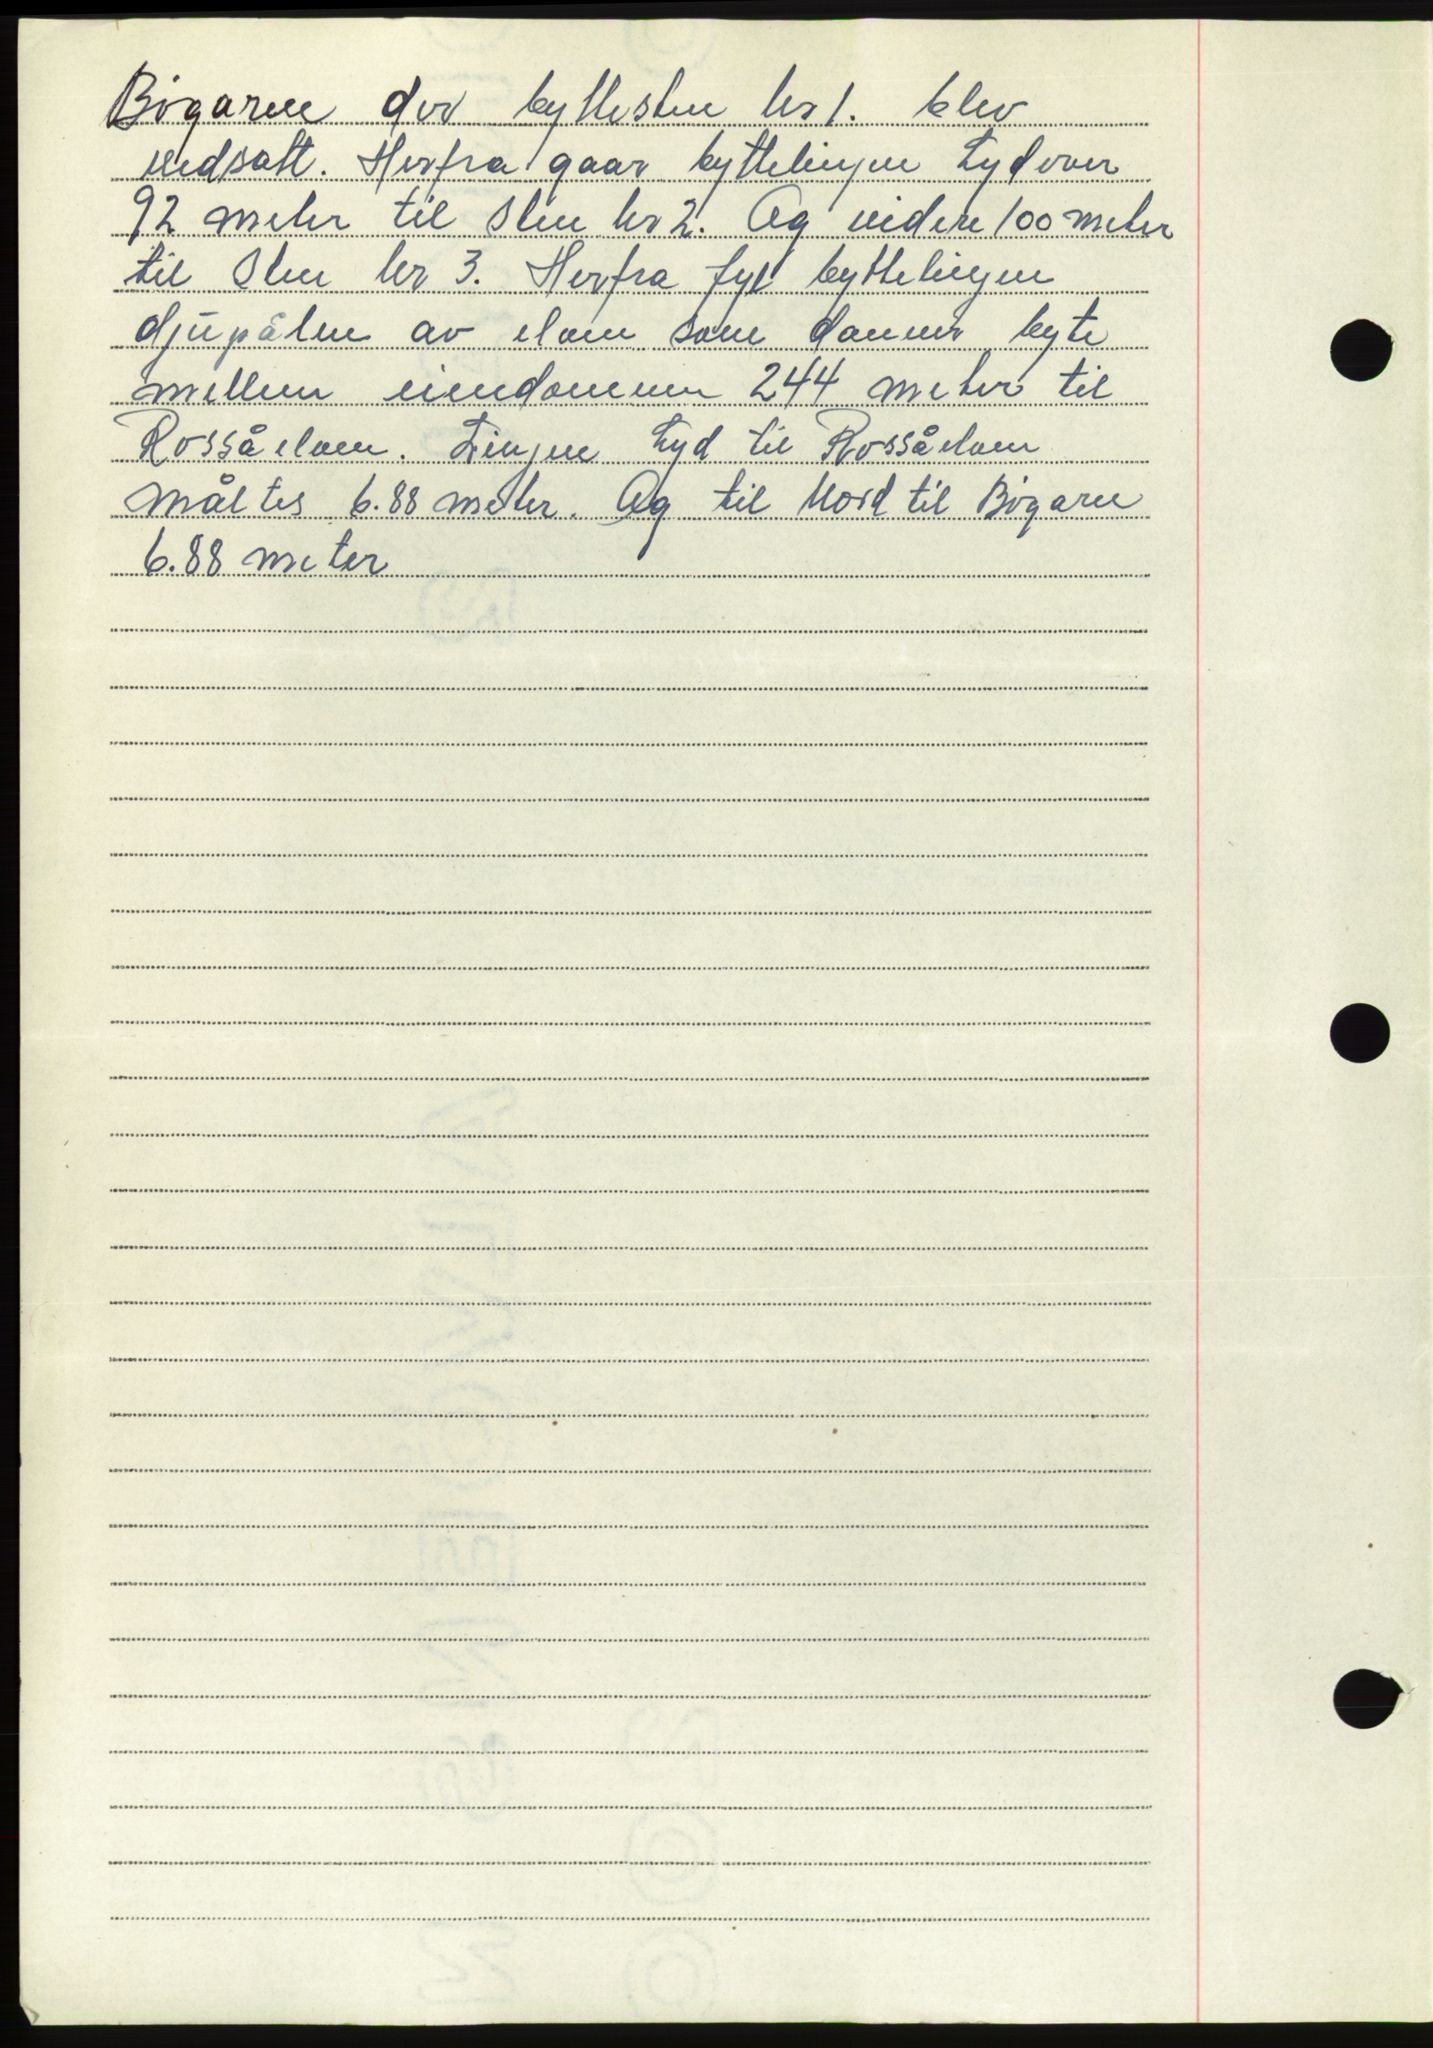 Bøgaren der byttesten nr 1. blev
nedsatt. Herfra gaar byttelinjen Sydover
92 meter til Sten nr 2. Og videre 100 meter
til Sten nr 3. Herfra fyl byttelinjen
djupålen av elven som danner byte
mellem eiendommen 244 meter til
Rossåelven. Linjen Syd til Rossåelven
måltes 6.88 meter. Og til Nord til Bøgaren
6.88 meter